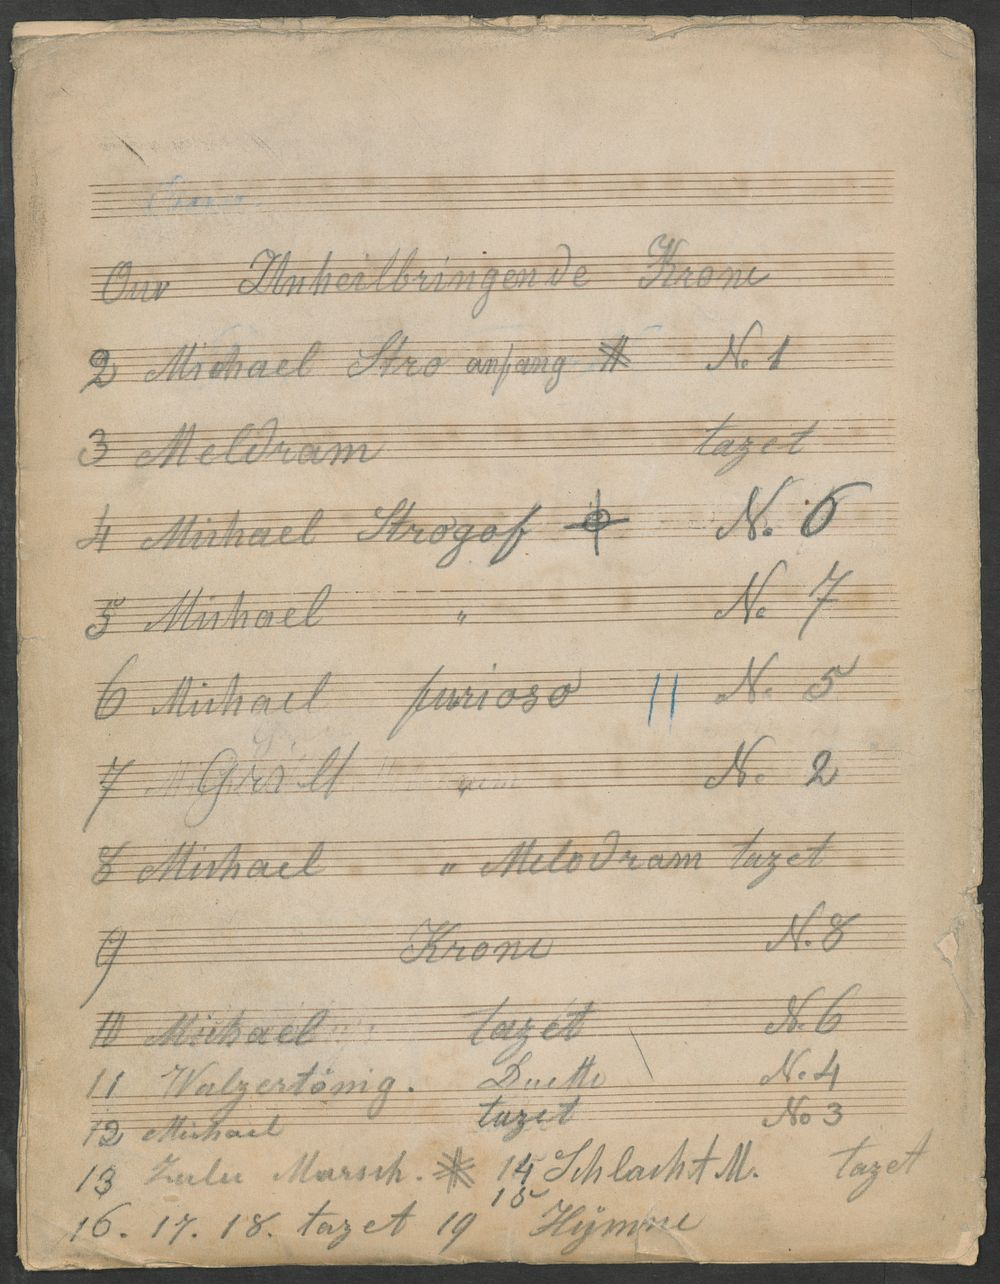 Ouv Unheilbringende Krone
2 Michael Stro anfang N. 1
3 Meldram tazet
4 Michael Strogof N. 6
5 Michael " N. 7
6 Michael furioso || N. 5
7 " N. 2
8 Michael " Melodram tazet
9 Krone N. 8
10 Michael tazet N. 6
11 Walzerkönig. Duette N. 4
12 Michael tazet No 3
13 Zulu Marsch. 14 Schlacht M. tazet
15
16. 17. 18. tazet 19 Hÿmne